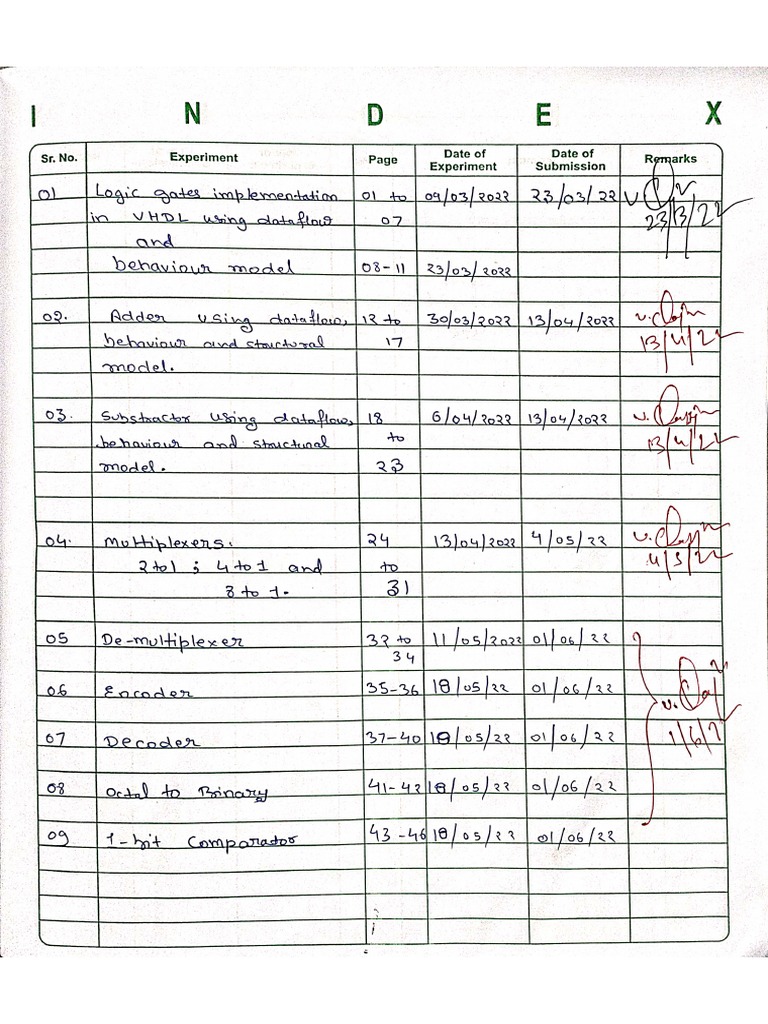 I N D E X
Sr. No. Experiment Page Date of Experiment Date of Submission Remarks
01 Logic gates implementation 01 to 09/03/2022 23/03/22
in VHDL using dataflow 07 23/3/22
and
behaviour model 08-11 23/03/2022
02. Adder using dataflow, 12 to 30/03/2022 13/04/2022
behaviour and structural 17 13/4/22
model.
03. Substractor using dataflow, 18 6/04/2022 13/04/2022
behaviour and structural to 13/4/22
model. 23
04. Multiplexers. 24 13/04/2022 4/05/22
2 to 1 ; 4 to 1 and to 4/5/22
8 to 1. 31
05 De-multiplexer 32 to 11/05/2022 01/06/22
34
06 Encoder 35-36 18/05/22 01/06/22
07 Decoder 37-40 18/05/22 01/06/22
1/6/2
08 Octal to Binary 41-42 18/05/22 01/06/22
09 1-bit Comparator 43-46 18/05/22 01/06/22